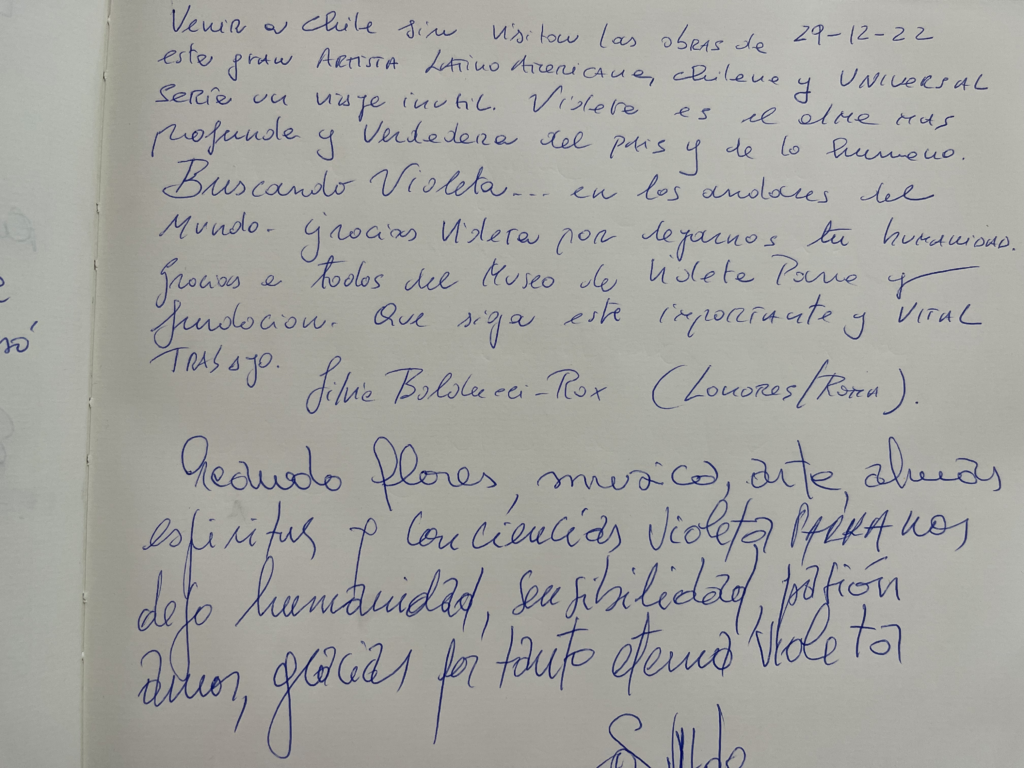 Venir a Chile sin visitar las obras de 29-12-22
este gran ARTISTA LATINO AMERICANA, chilena y UNIVERSAL
sería un viaje inutil. Violeta es el alma mas
profunda y verdadera del pais y de lo humano.
Buscando Violeta... en los andares del
Mundo. Gracias Violeta por dejarnos tu HUMANIDAD.
Gracias a todos del Museo de Violeta Parra y
fundacion. Que siga este importante y VITAL
TRABAJO.
Silvia Balducci-Rox (LONDRES/ROMA).
Creando flores, musica, arte, almas
espiritus y conciencias Violeta PARRA NOS
dejo humanidad, sensibilidad, pasión
amor, gracias por tanto eterna Violeta